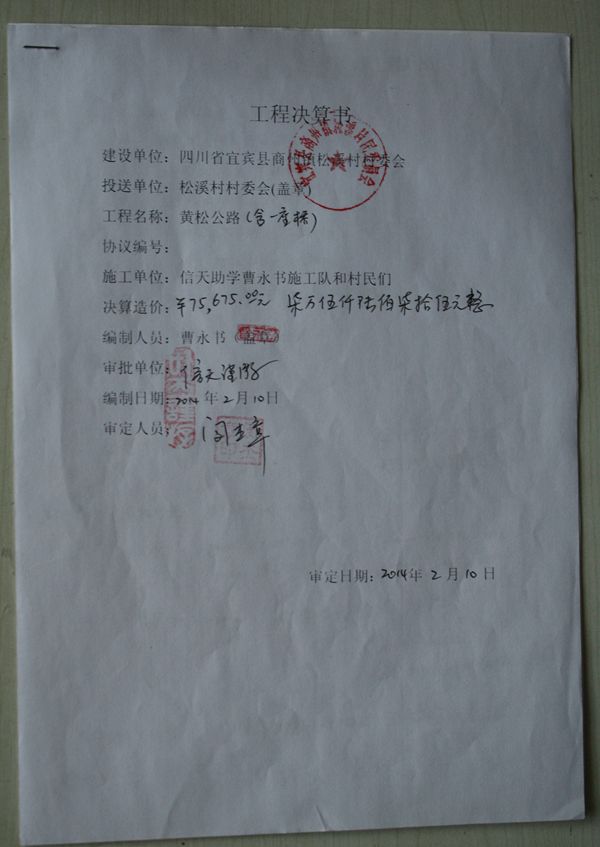 工程决算书
建设单位：四川省宜宾县商州镇松溪村村委会
投送单位：松溪村村委会(盖章)
工程名称：黄松公路(含一座桥)
协议编号：
施工单位：信天助学曹永书施工队和村民们
决算造价：¥75,675.00元 柒万伍仟陆佰柒拾伍元整
编制人员：曹永书(盖章)
审批单位：信天
编制日期：2014年2月10日
审定人员：
审定日期：2014年2月10日